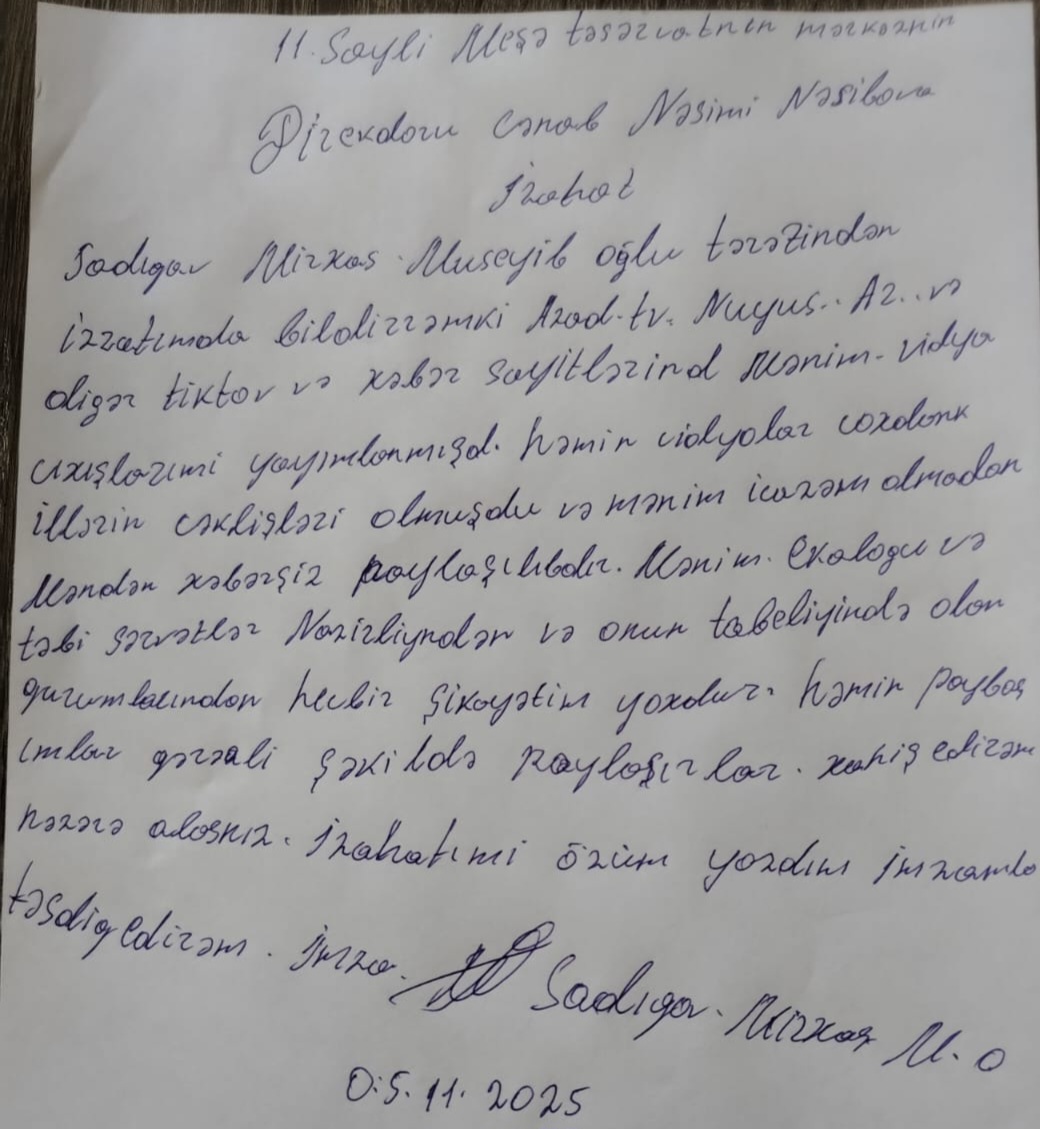 11. Sayli Meşə təsərvatnın mərkəznin
Direkdoru Cənab Nəsimi Nəsibova
İzahat
Sadıgov Mirxas Museyib oğlu tərəfindən
izzatımda bildirrəmki Azad.tv. Nuyus.. Az.. və
digər tiktov və xəbər sayitlərind Mənim. vidya
cıxışlarımi yayımlanmışd. həmin vidyolar coxdank
illərin cəklişləri olmuşdu və mənim icazəm olmadan
Məndən xəbərsiz paylaşılıbdır. Mənim. Ekalogu və
təbi sərvətlər Nazirliyndən və onun tabeliyində olan
qurumlarından hecbir şikayətim yoxdur. həmin paylaş
ımlar qərəali şəkildə paylaşırlar. xahiş edirəm
nəzərə alasnız. İzahatımi özüm yazdım imzamla
təsdiq edirəm. imza. Sadıgov. Mirxaş M. o
0.5.11.2025